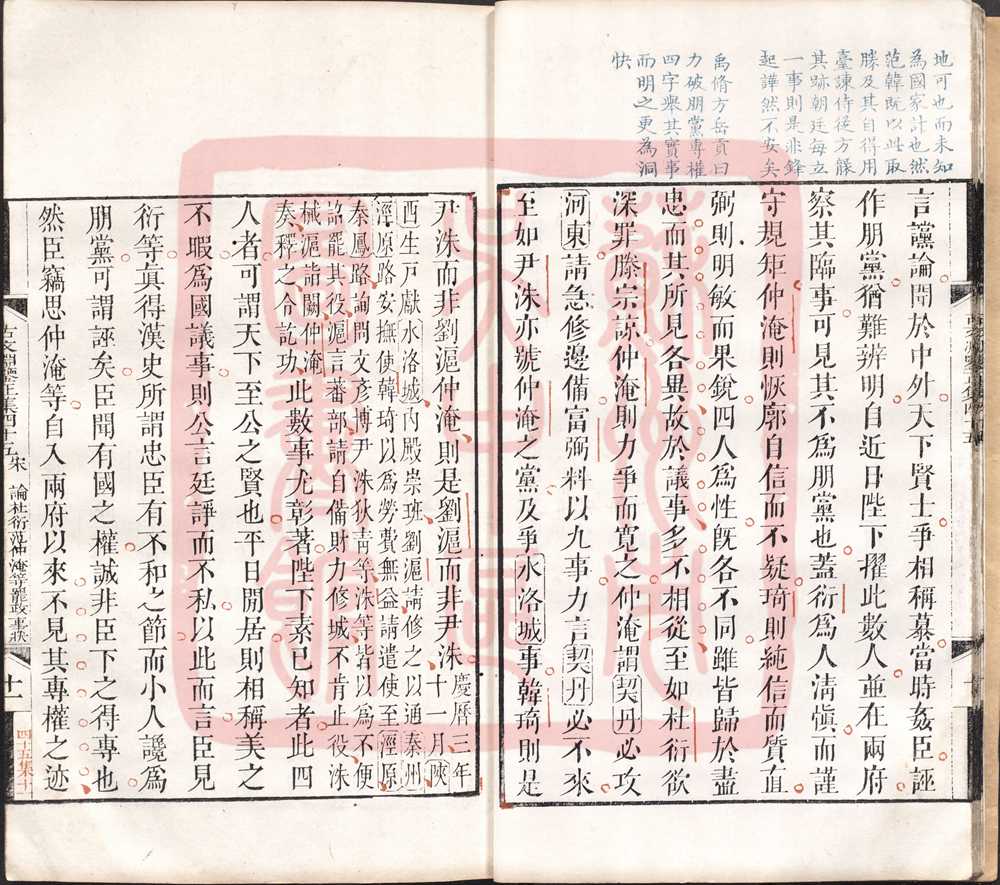 地可也而未知
為國家計也然
范韓既以此取
勝及其自得用
臺諫侍從方蹑
其跡朝廷每立
一事則是非鋒
起譁然不安矣
禹脩方岳貢曰
力破朋黨專權
四字舉其實事
而明之更為洞
快
言讜論聞於中外天下賢士爭相稱慕當時姦臣誣
作朋黨猶難辨明自近日陛下擢此數人並在兩府
察其臨事可見其不為朋黨也蓋衍為人淸愼而謹
守規矩仲淹則恢廓自信而不疑琦則純信而質直
弼則明敏而果銳四人為性旣各不同雖皆歸於盡
忠而其所見各異故於議事多不相從至如杜衍欲
深罪滕宗諒仲淹則力爭而寬之仲淹謂契丹必攻
河東請急修邊備富弼料以九事力言契丹必不來
至如尹洙亦號仲淹之黨及爭水洛城事韓琦則是
尹洙而非劉滬仲淹則是劉滬而非尹洙慶曆三年
十一月陝
西生戸獻水洛城內殿崇班劉滬請修之以通秦州
涇原路安撫使韓琦以為勞費無益請遣使至涇原
秦鳳路詢問文彥博尹洙狄靑等洙等皆以為不便
詔罷其役滬言蕃部請自備財力修城不肯止役洙
械滬詣闕仲淹
奏釋之令訖功此數事尤彰著陛下素已知者此四
人者可謂天下至公之賢也平日閒居則相稱美之
不暇為國議事則公言廷諍而不私以此而言臣見
衍等眞得漢史所謂忠臣有不和之節而小人讒為
朋黨可謂誣矣臣聞有國之權誠非臣下之得專也
然臣竊思仲淹等自入兩府以來不見其專權之跡
古文淵鑒正集四十五宋
論杜衍范仲淹等罷政事狀
十一
四十五集十一